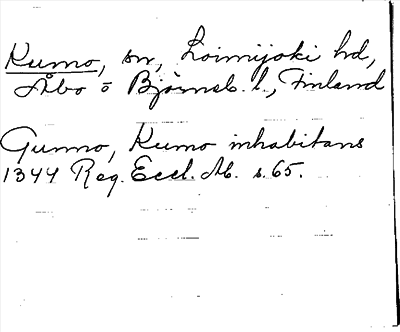 Kumo, sn, Loimijoki hd,
Åbo o Björneb. l., Finland
Gunno, Kumo inhabitans
1344 Reg. Eccl. Ab. s. 65.